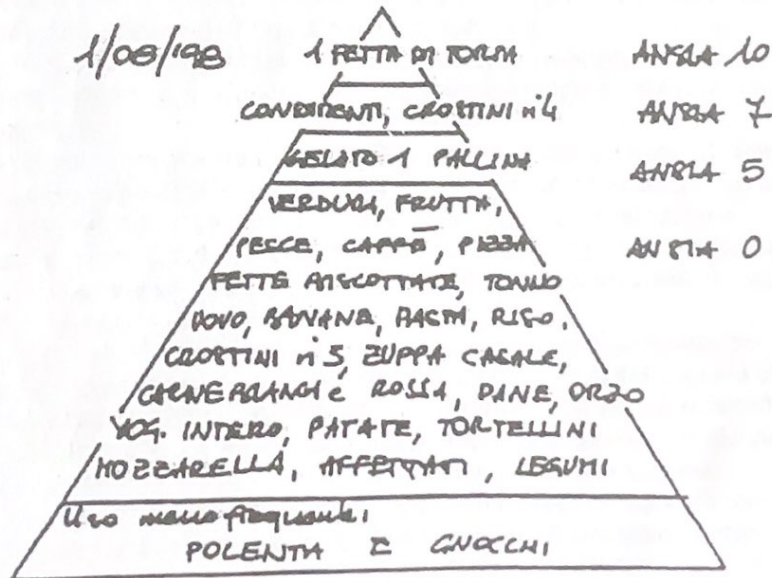 1/08/198 1 FETTA DI TORTA ANSIA 10
CONDIMENTI, CROSTINI n°4 ANSIA 7
GELATO 1 PALLINA ANSIA 5
VERDURA, FRUTTA,
PESCE, CAFFÈ, PIZZA ANSIA 0
FETTE BISCOTTATE, TONNO
UOVO, BANANE, PASTA, RISO,
CROSTINI n°5, ZUPPA CASALE,
CARNE BIANCA e ROSSA, PANE, ORZO
YOG. INTERO, PATATE, TORTELLINI
MOZZARELLA, AFFETTATI, LEGUMI
Uso meno frequente:
POLENTA E GNOCCHI